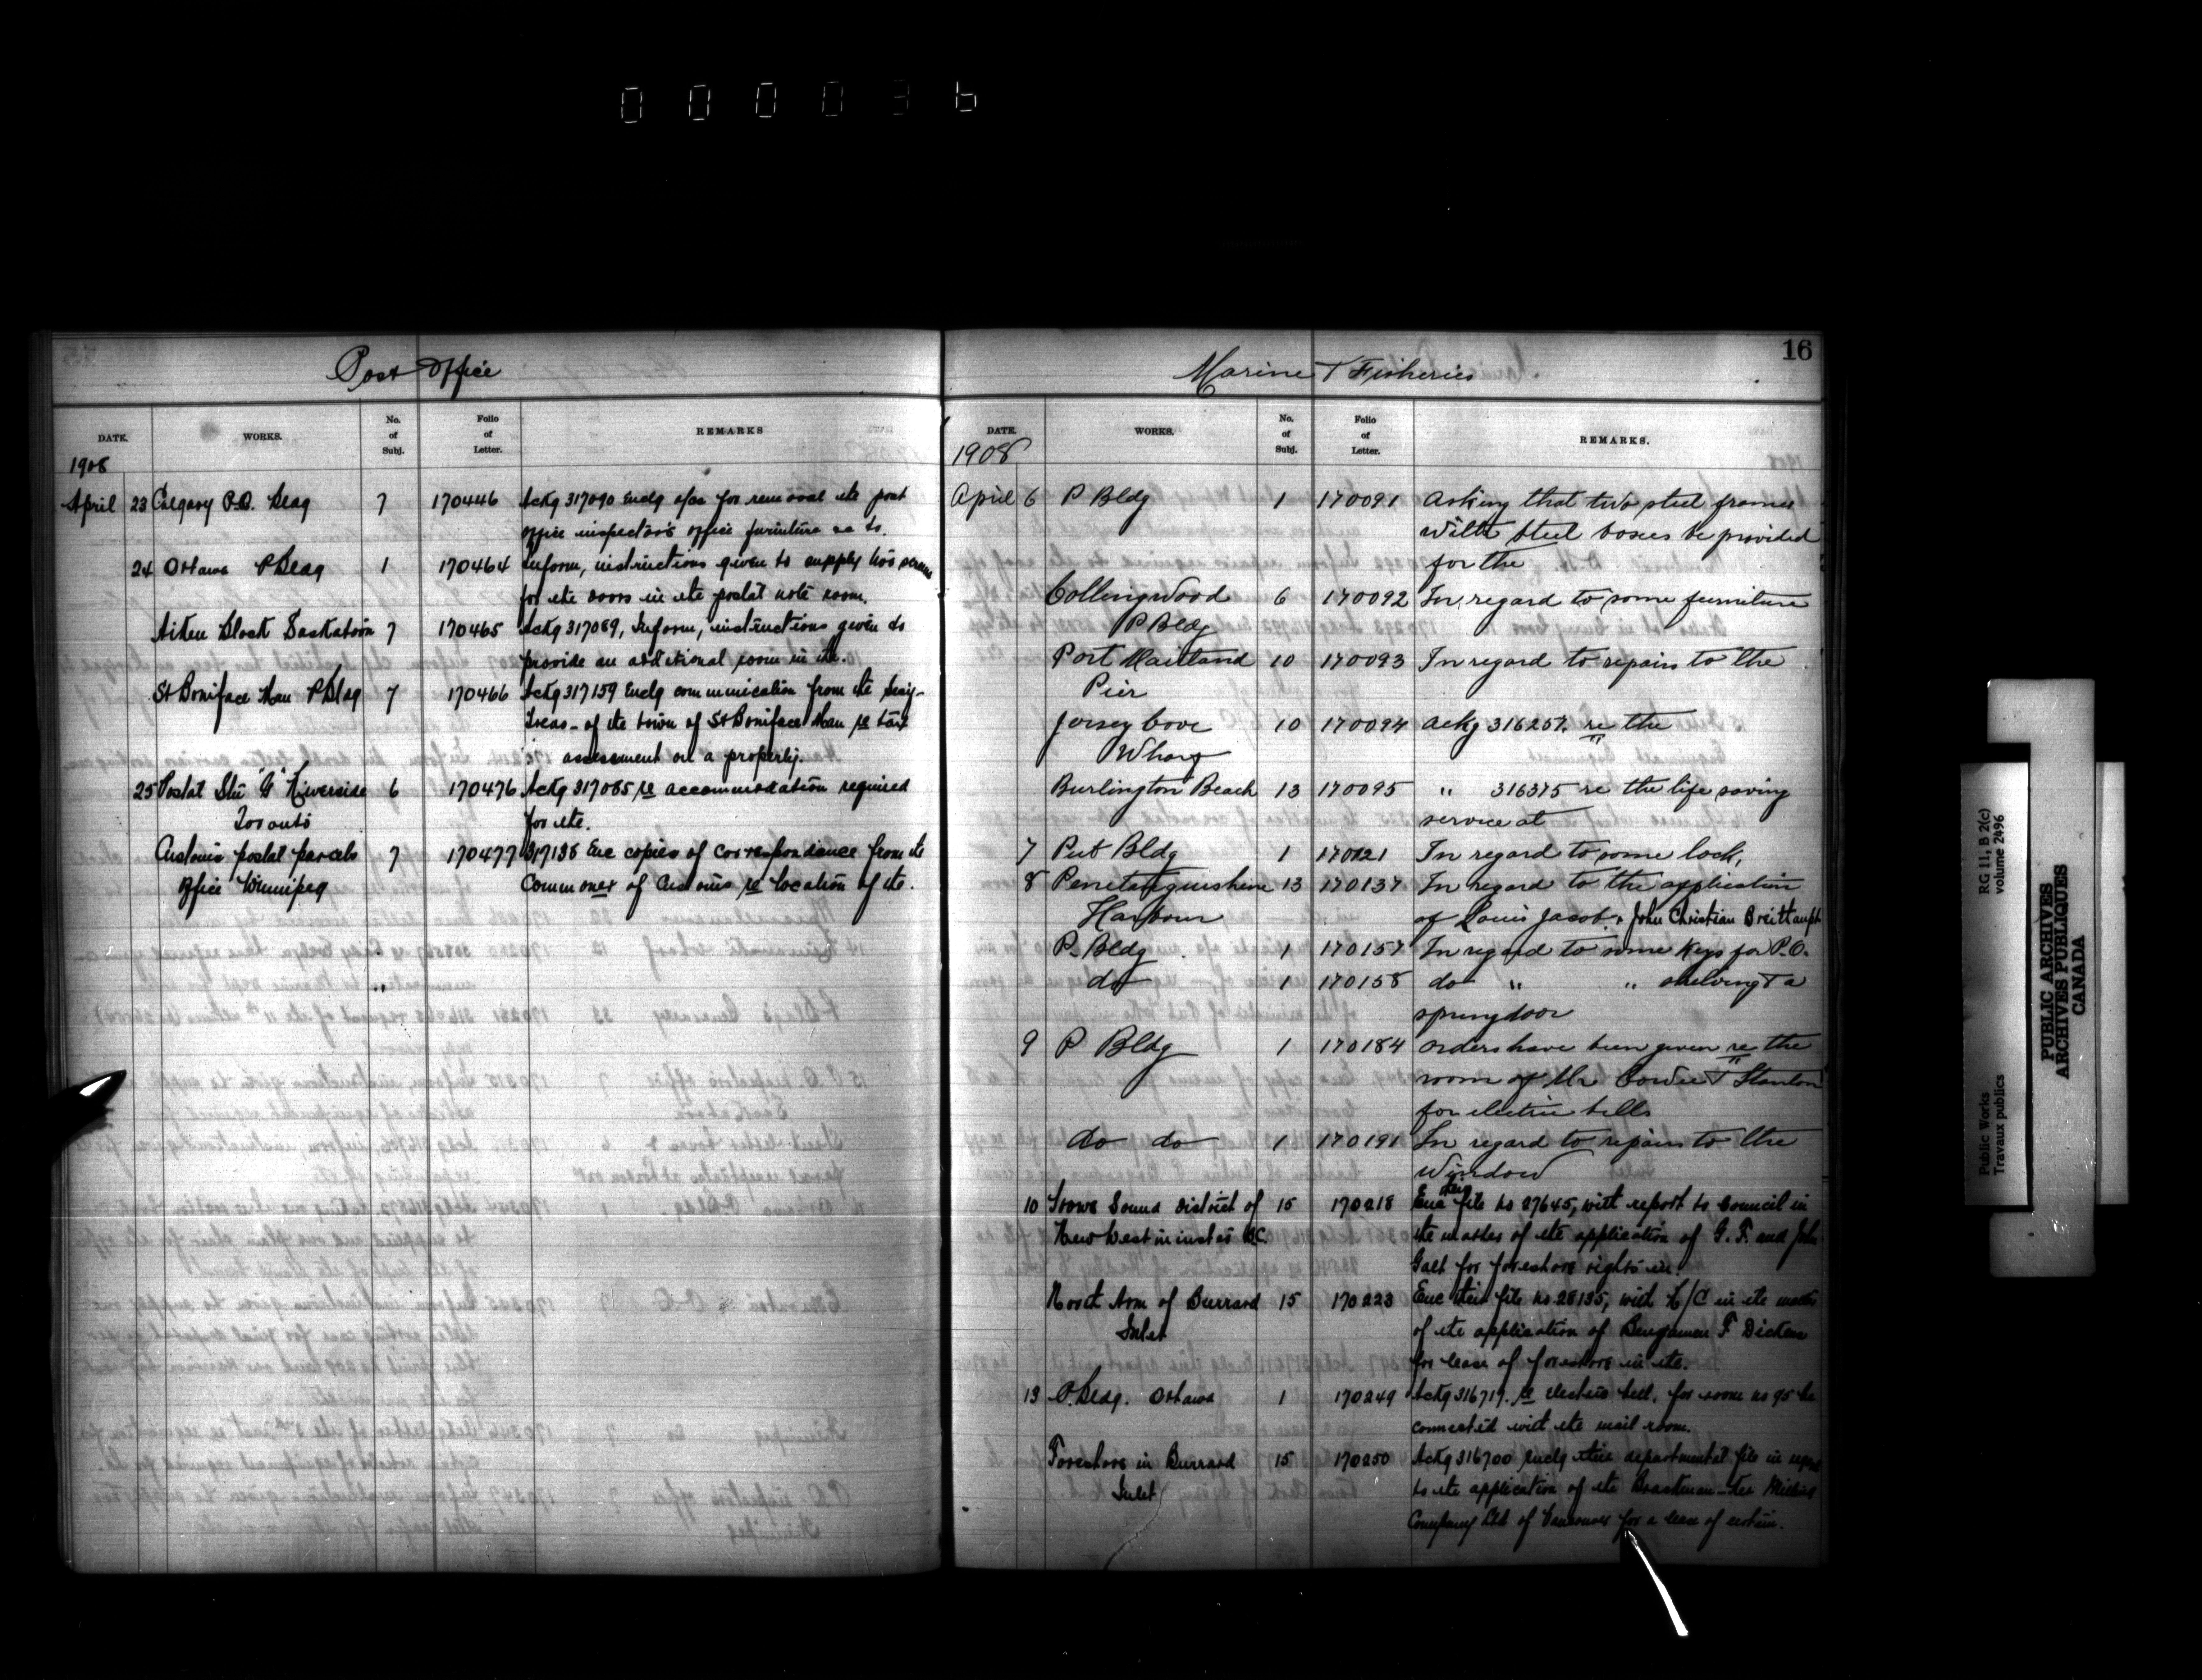 000036
Post Office
DATE. WORKS. No. of Subj. Folio of Letter. REMARKS
1908
April 23 Calgary P.O. Bldg 7 170446 Ackg 317090 Enclg a/cs for removal of the post
office inspector's office furniture
24 Ottawa P Bldg 1 170464 Inform, instructions given to supply two
for the doors in the postal note room.
Aitken Block Saskatoon 7 170465 Ackg 317089, Inform, instructions given to
provide an additional room in the.
St Boniface Man P Bldg 7 170466 Ackg 317159 Enclg communication from the Secy-
Treas - of the town of St Boniface Man re tax
assessment on a property.
25 Postal Stn "G" Riverside 6 170476 Ackg 317085 re accommodation required
Toronto for the.
Customs postal parcels 7 170477 317138 Enc copies of correspondence from the
Office Winnipeg Commoner of Customs re location of the.
16
Marine & Fisheries
DATE. WORKS. No. of Subj. Folio of Letter. REMARKS.
1908
April 6 P Bldg 1 170091 Asking that two steel frames
with steel boxes be provided
for the
Collingwood 6 170092 In regard to some furniture
P Bldg
Port Maitland 10 170093 In regard to repairs to the
Pier
Jersey Cove 10 170094 Ackg 316257. re the
Wharf
Burlington Beach 13 170095 " 316375 re the life saving
service at
7 Put Bldg 1 170121 In regard to some lock,
8 Penetanguishine 13 170137 In regard to the application
Harbour of Louis Jacob & John Christian Breithaupt
P. Bldg 1 170157 In regard to some keys for P.O.
do 1 170158 do " " shelving & a
spring door
9 P Bldg 1 170184 Orders have been given re the
room of Mr Cowie & Stanton
for electric bells
do do 1 170191 In regard to repairs to the
Window
10 Howe Sound District of 15 170218 Enc their file no 27645, with report to Council in
New Westminster B.C. the matter of the application of G. F. and John
Galt for foreshore rights in.
North Arm of Burrard 15 170223 Enc their file no 28135, with R/C in the matter
Inlet of the application of Benjamin F Dickens
for lease of foreshore in the.
13 P. Bldg. Ottawa 1 170249 Ackg 316717. re electric bell. for room no 95 be
connected with the mail room.
Foreshore in Burrard 15 170250 Ackg 316700 Enclg their departmental file in regard
Inlet to the application of the
Company Ltd of Vancouver for a lease of certain.
Public Works
Travaux publics
RG 11, B 2(c)
volume 2496
PUBLIC ARCHIVES
ARCHIVES PUBLIQUES
CANADA